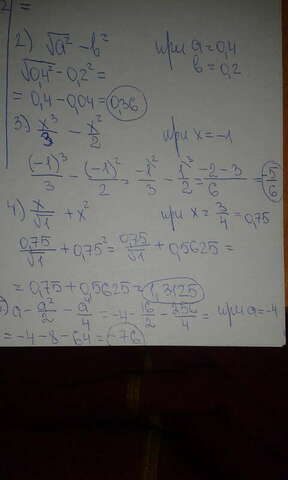 2 =
2) √a² - b² при a = 0,4
b = 0,2
√0,4² - 0,2² =
= 0,4 - 0,04 = 0,36
3) x³/3 - x²/2 при x = -1
(-1)³/3 - (-1)²/2 = -1²/3 - 1³/2 = -2-3/6 = -5/6
4) x/√1 + x² при x = 3/4 = 0,75
0,75/√1 + 0,75² = 0,75/√1 + 0,5625 =
= 0,75 + 0,5625 = 1,3125
) a - a²/2 - a⁴/4 = -4 - 16/2 - 256/4 = при a = -4
= -4 - 8 - 64 = -76